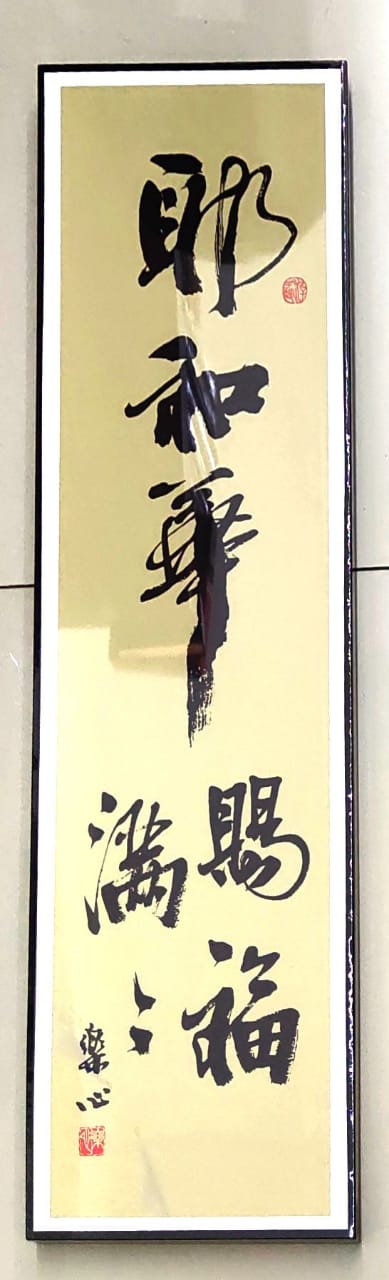 耶和華
賜福
滿〻
樂心